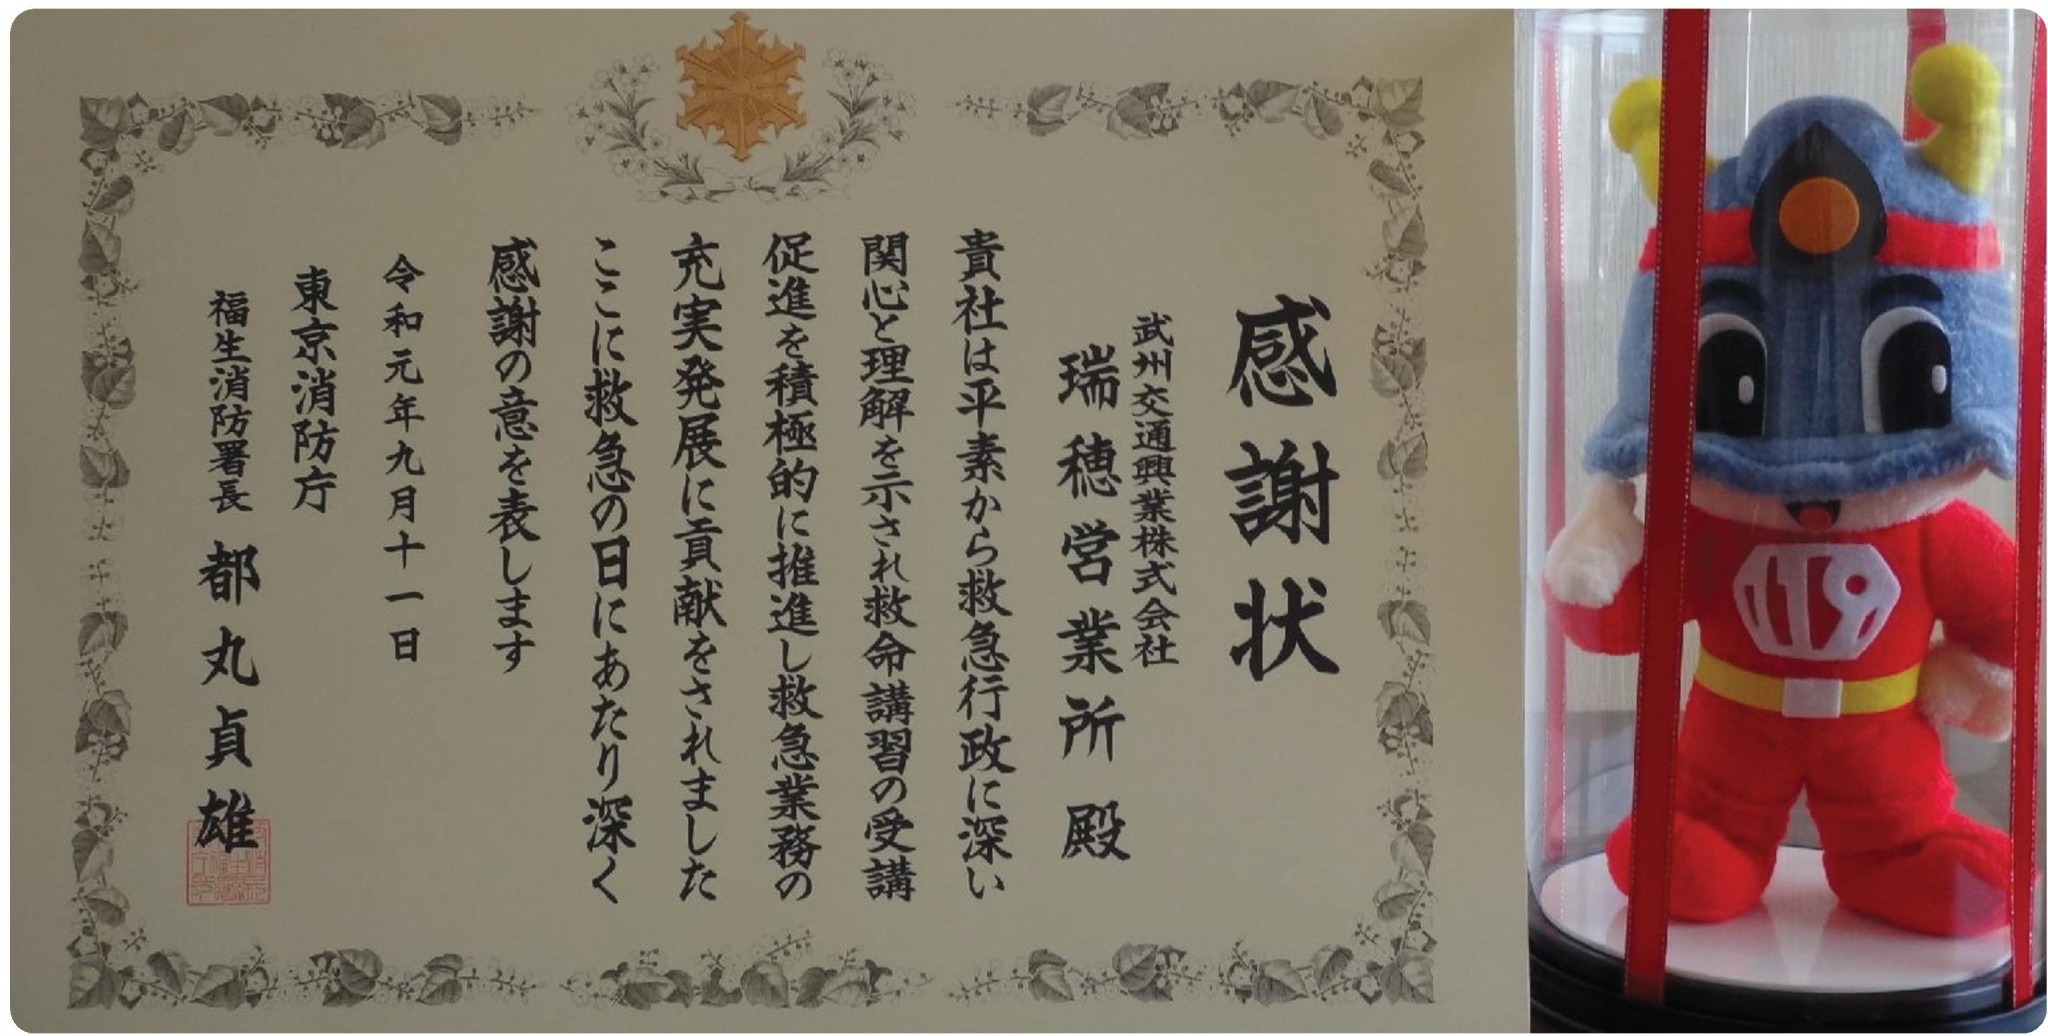 感謝状
武州交通興業株式会社
瑞穂営業所殿
貴社は平素から救急行政に深い
関心と理解を示され救命講習の受講
促進を積極的に推進し救急業務の
充実発展に貢献をされました
ここに救急の日にあたり深く
感謝の意を表します
令和元年九月十一日
東京消防庁
福生消防署長 都丸貞雄
119